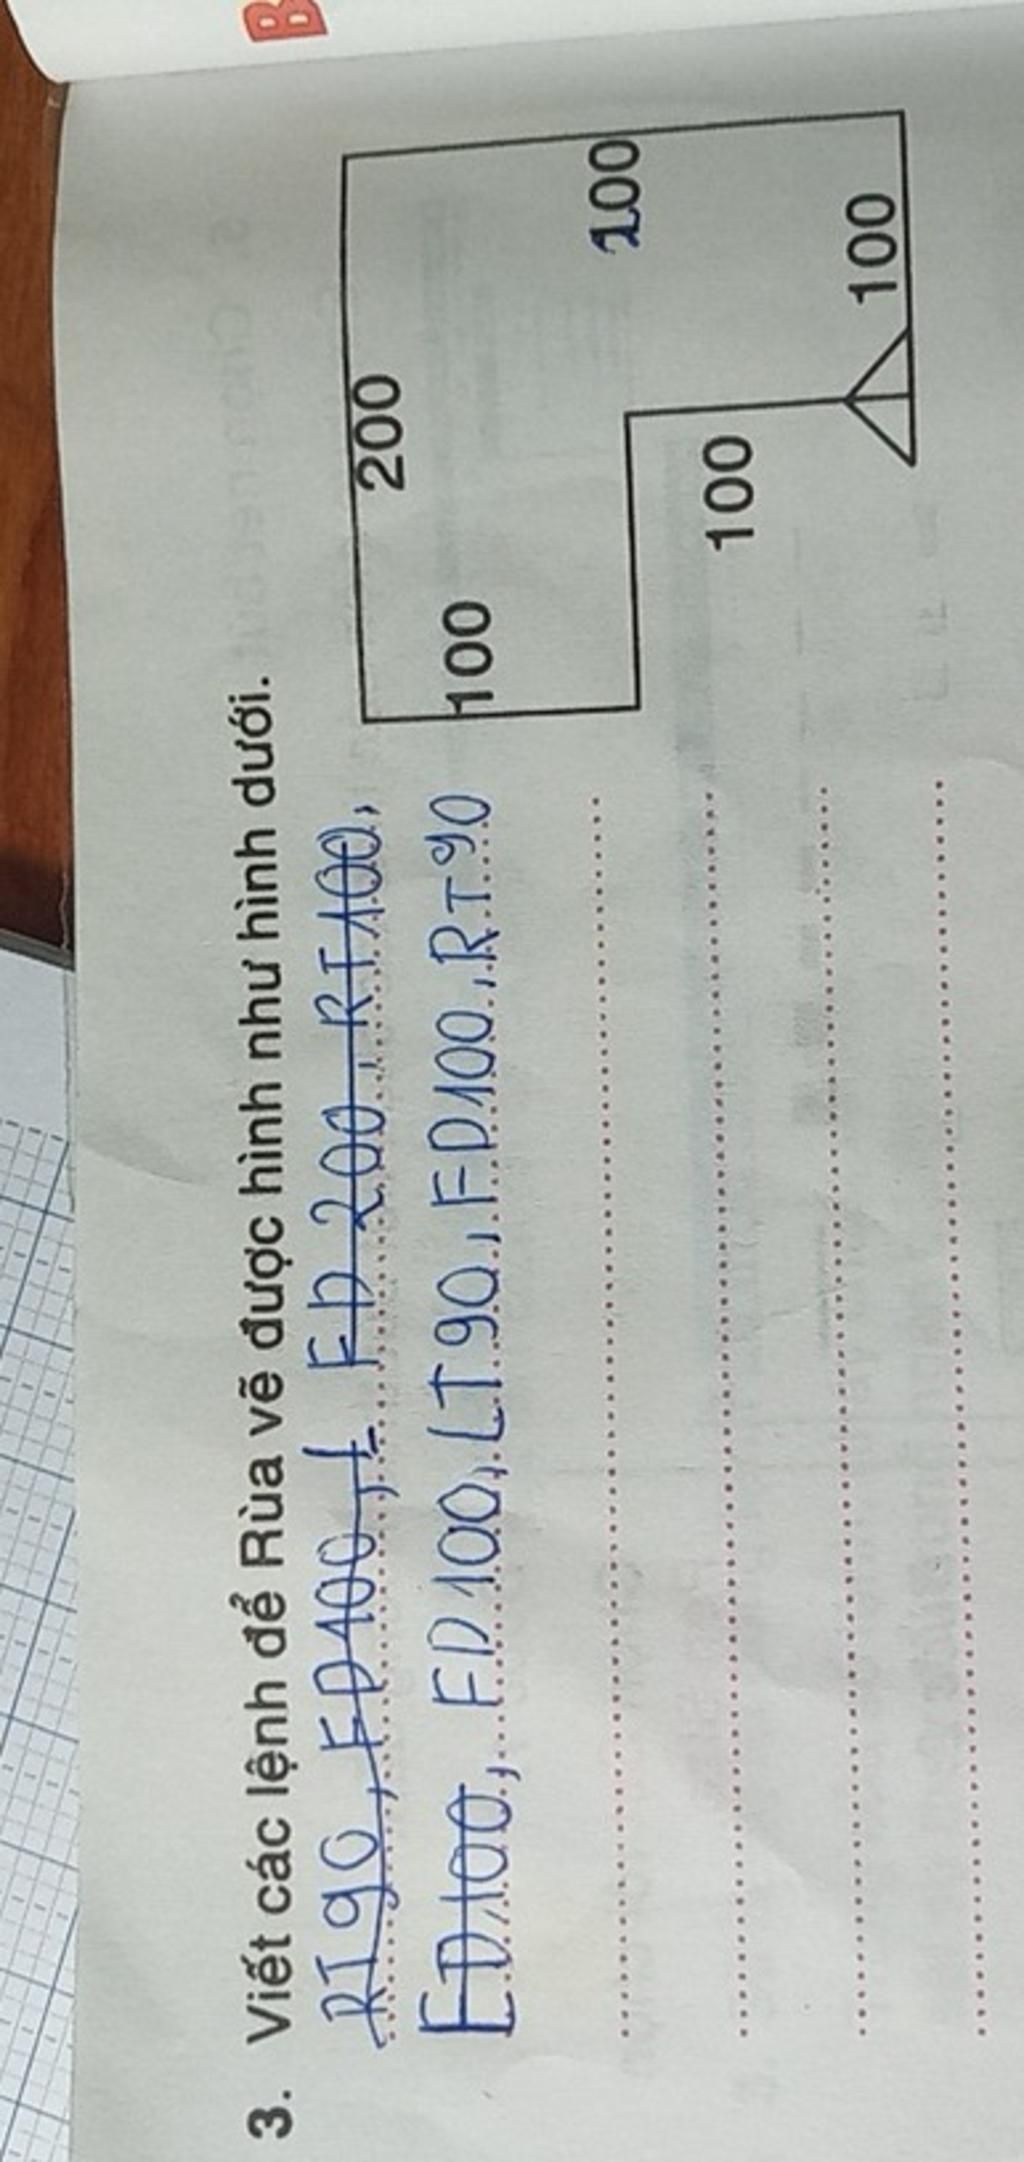 B
3. Viết các lệnh để Rùa vẽ được hình như hình dưới.
RT90, FD100, L FD 200, RT100,
FD100, FD 100, LT90, FD100, RT90
200
100
200
100
100